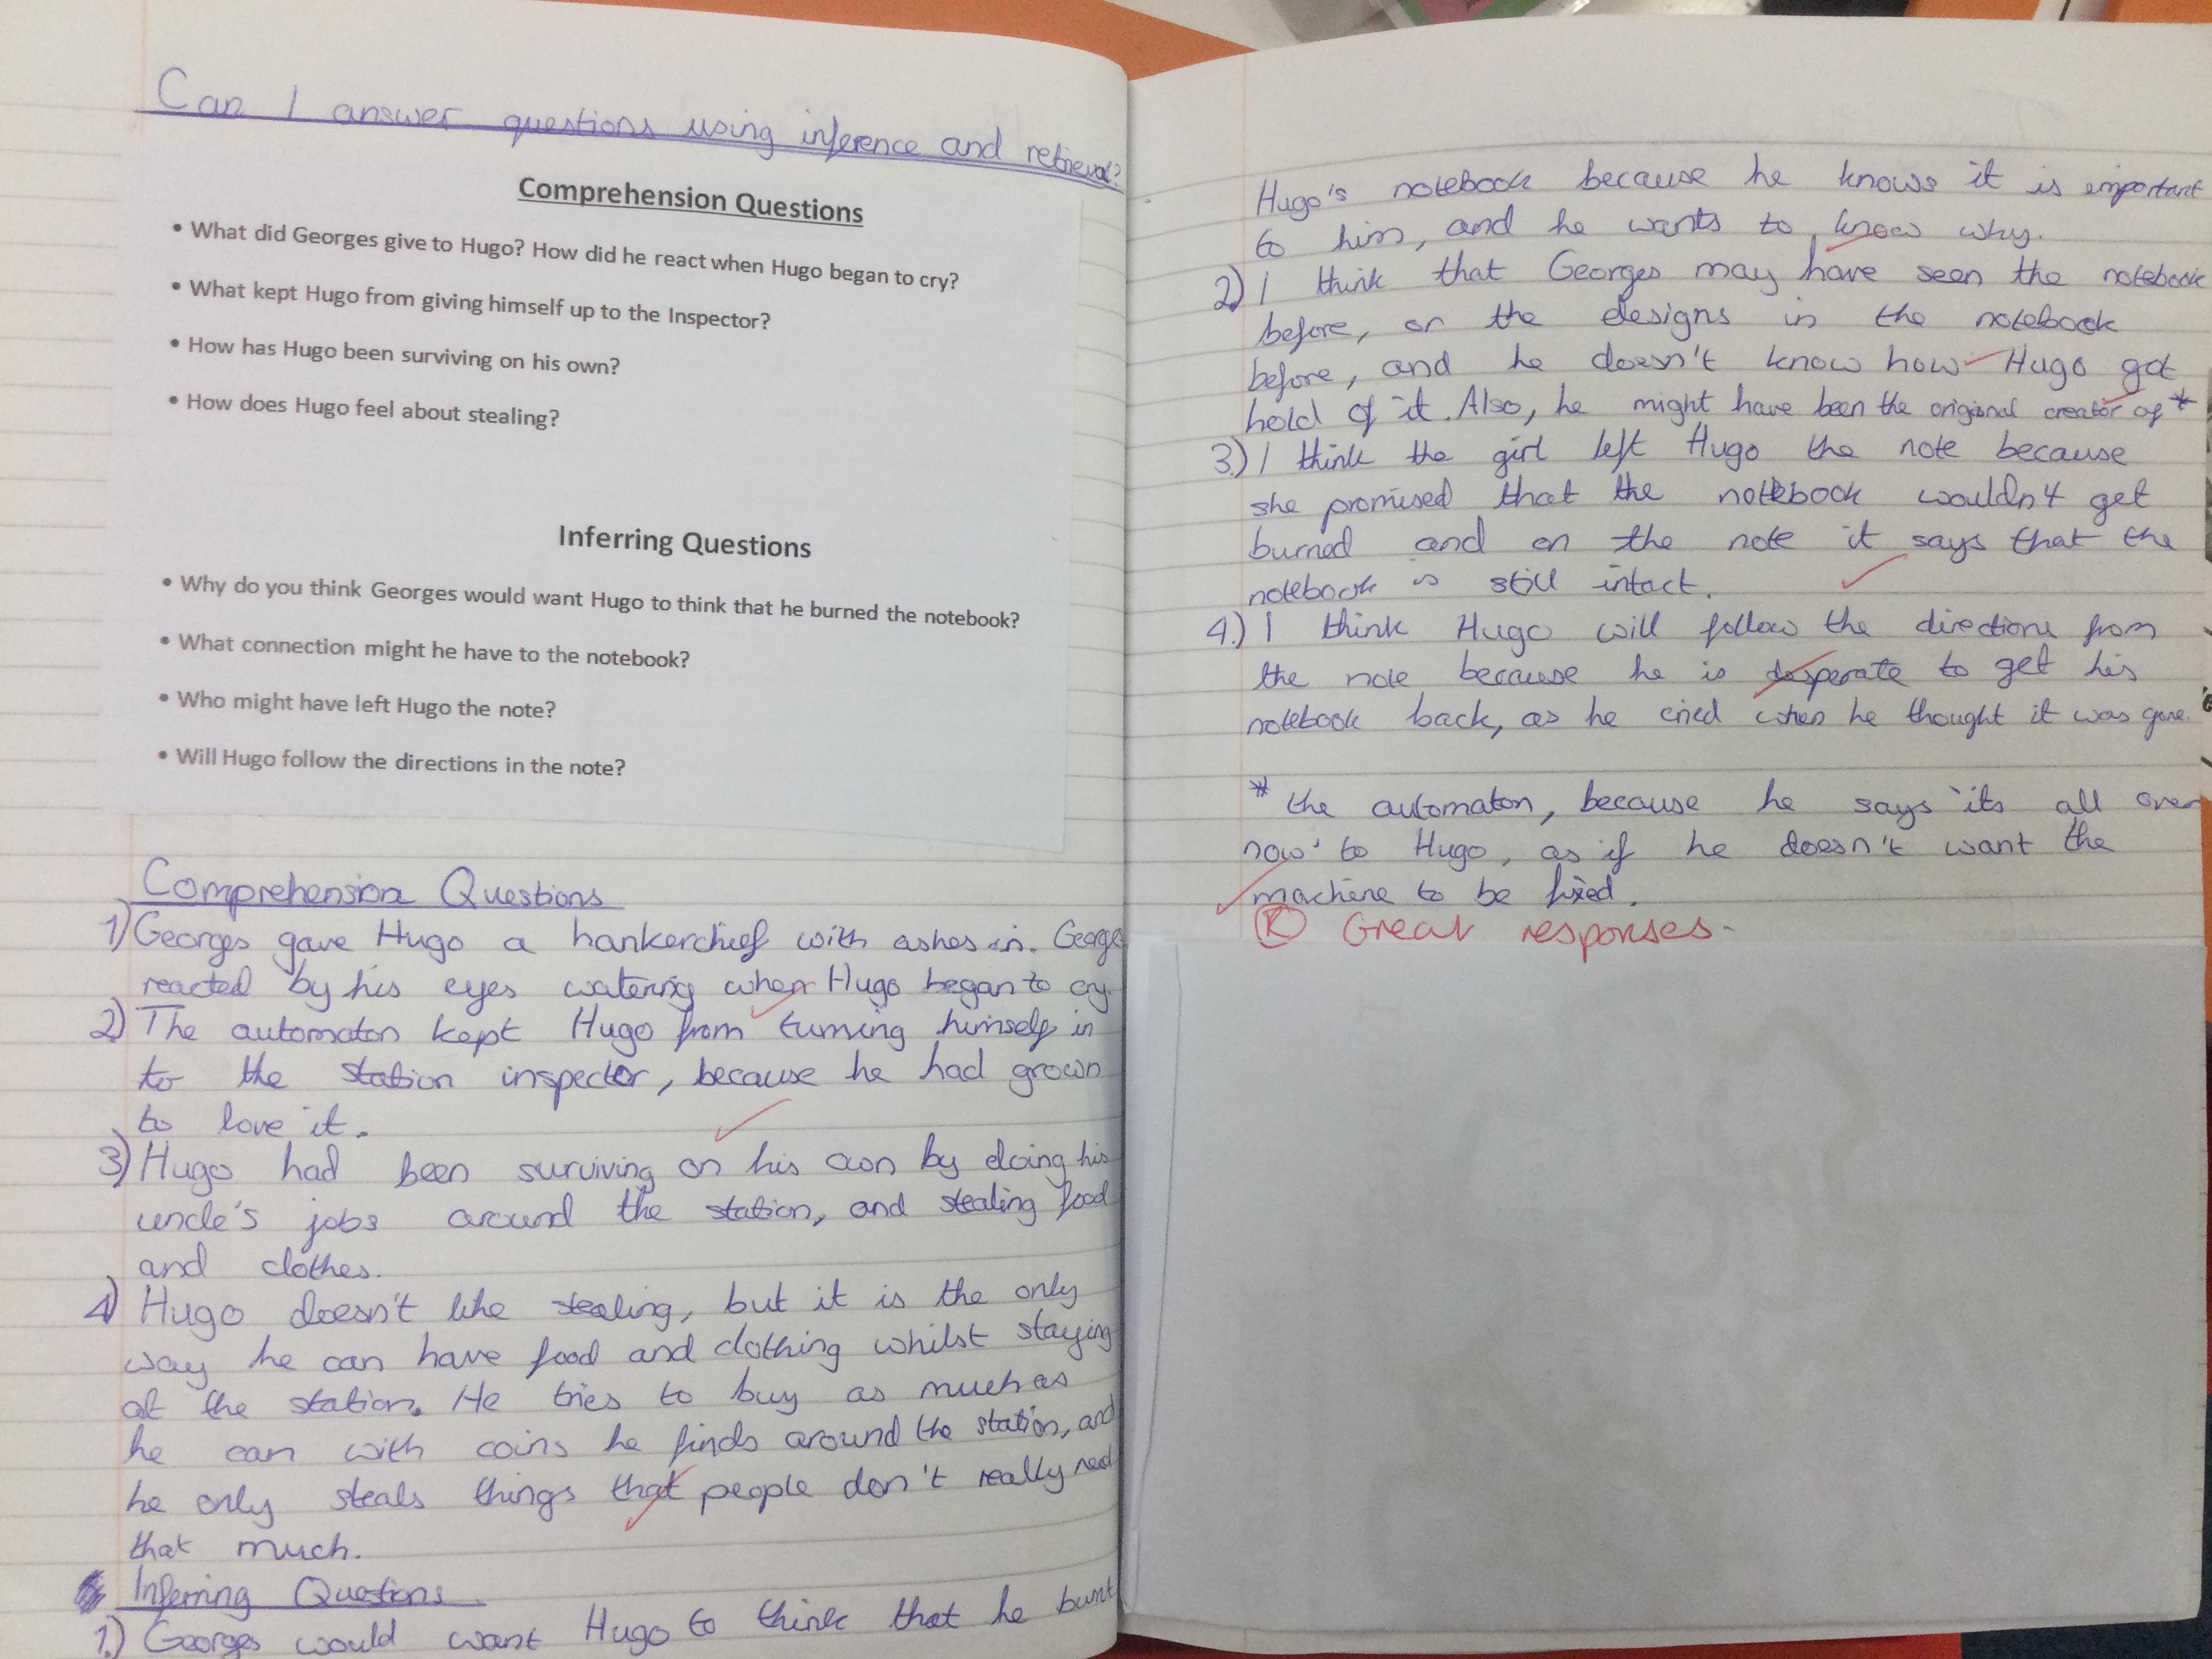 Can I answer questions using inference and retrieval?
Comprehension Questions
• What did Georges give to Hugo? How did he react when Hugo began to cry?
• What kept Hugo from giving himself up to the Inspector?
• How has Hugo been surviving on his own?
• How does Hugo feel about stealing?
Inferring Questions
• Why do you think Georges would want Hugo to think that he burned the notebook?
• What connection might he have to the notebook?
• Who might have left Hugo the note?
• Will Hugo follow the directions in the note?
Comprehension Questions
1) Georges gave Hugo a hankerchief with ashes in. Georges
reacted by his eyes watering when Hugo began to cry.
2) The automaton kept Hugo from turning himself in
to the station inspector, because he had grown
to love it.
3) Hugo had been surviving on his own by doing his
uncle's jobs around the station, and stealing food
and clothes.
4) Hugo doesn't like stealing, but it is the only
way he can have food and clothing whilst staying
at the station. He tries to buy as much as
he can with coins he finds around the station, and
he only steals things that people don't really need
that much.
Inferring Questions
1.) Georges would want Hugo to think that he burnt
Hugo's notebook because he knows it is important
to him, and he wants to know why.
2) I think that Georges may have seen the notebook
before, or the designs in the notebook
before, and he doesn't know how Hugo got
hold of it. Also, he might have been the original creator of *
3.) I think the girl left Hugo the note because
she promised that the notebook wouldn't get
burned and on the note it says that the
notebook is still intact.
4.) I think Hugo will follow the directions from
the note because he is desperate to get his
notebook back, as he cried when he thought it was gone.
* the automaton, because he says 'its all over
now' to Hugo, as if he doesn't want the
machine to be fixed.
R Great responses.